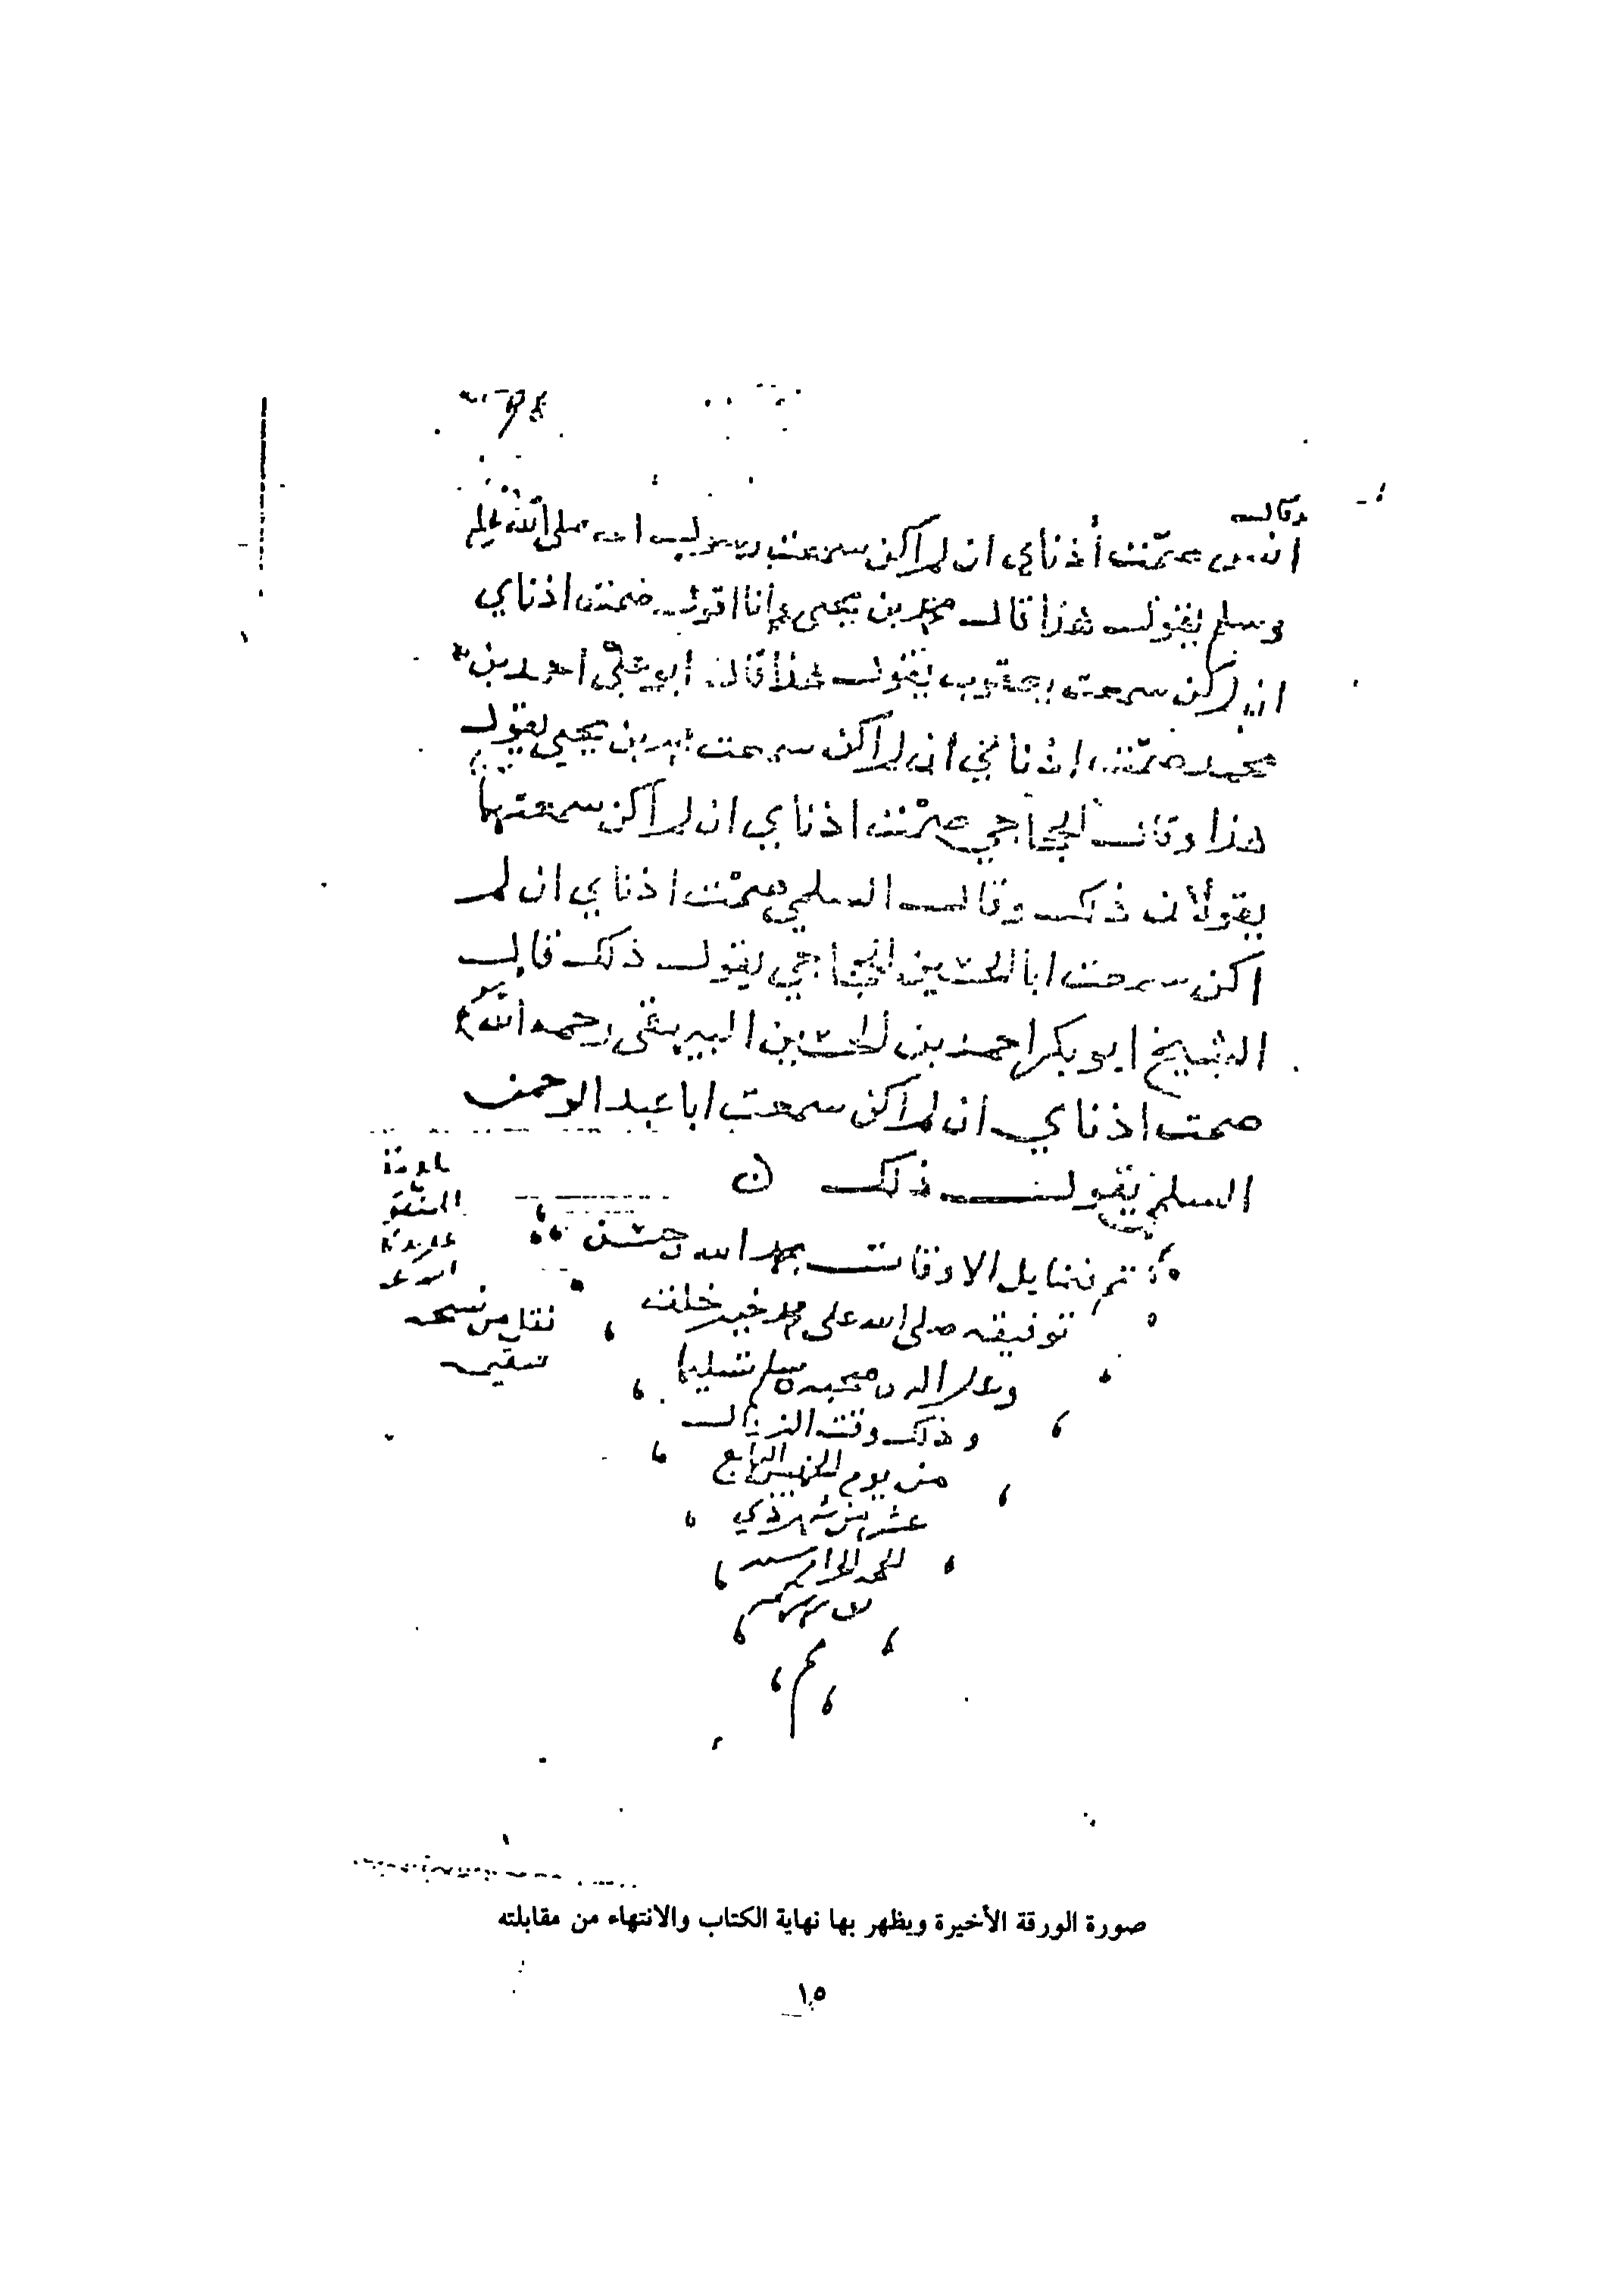 وقال
انس صمّت أذناي ان لم اكن سمعت رسول الله صلى الله عليه
وسلم يقول هذا قال محمد بن يحيى وانا اقول صمت اذناي
ان لم اكن سمعت يعقوب يقول هذا قال ابو علي احمد بن
محمد صمّت اذناي ان لم اكن سمعت محمد بن يحيى يقول
هذا وقال الحجاجي صمّت اذناي ان لم اكن سمعتهما
يقولان ذلك وقال السلمي صمّت اذناي ان لم
اكن سمعت ابا الحسين الحجاجي يقول ذلك قال
الشيخ ابو بكر احمد بن الحسين البيهقي رحمه الله
صمت اذناي ان لم اكن سمعت ابا عبد الرحمن
السلمي يقول ذلك ن
تم فضايل الاوقات بحمد الله وحسن
توفيقه صلى الله على محمد خير خلقه
وعلى اله وصحبه وسلم تسليما
وذلك وقت الزوال
من يوم الخميس الرابع
عشر من شهر ذي
الحجة الحرام سنة
نقل من نسخه
سقيمه
صورة الورقة الأخيرة ويظهر بها نهاية الكتاب والانتهاء من مقابلته
١٥